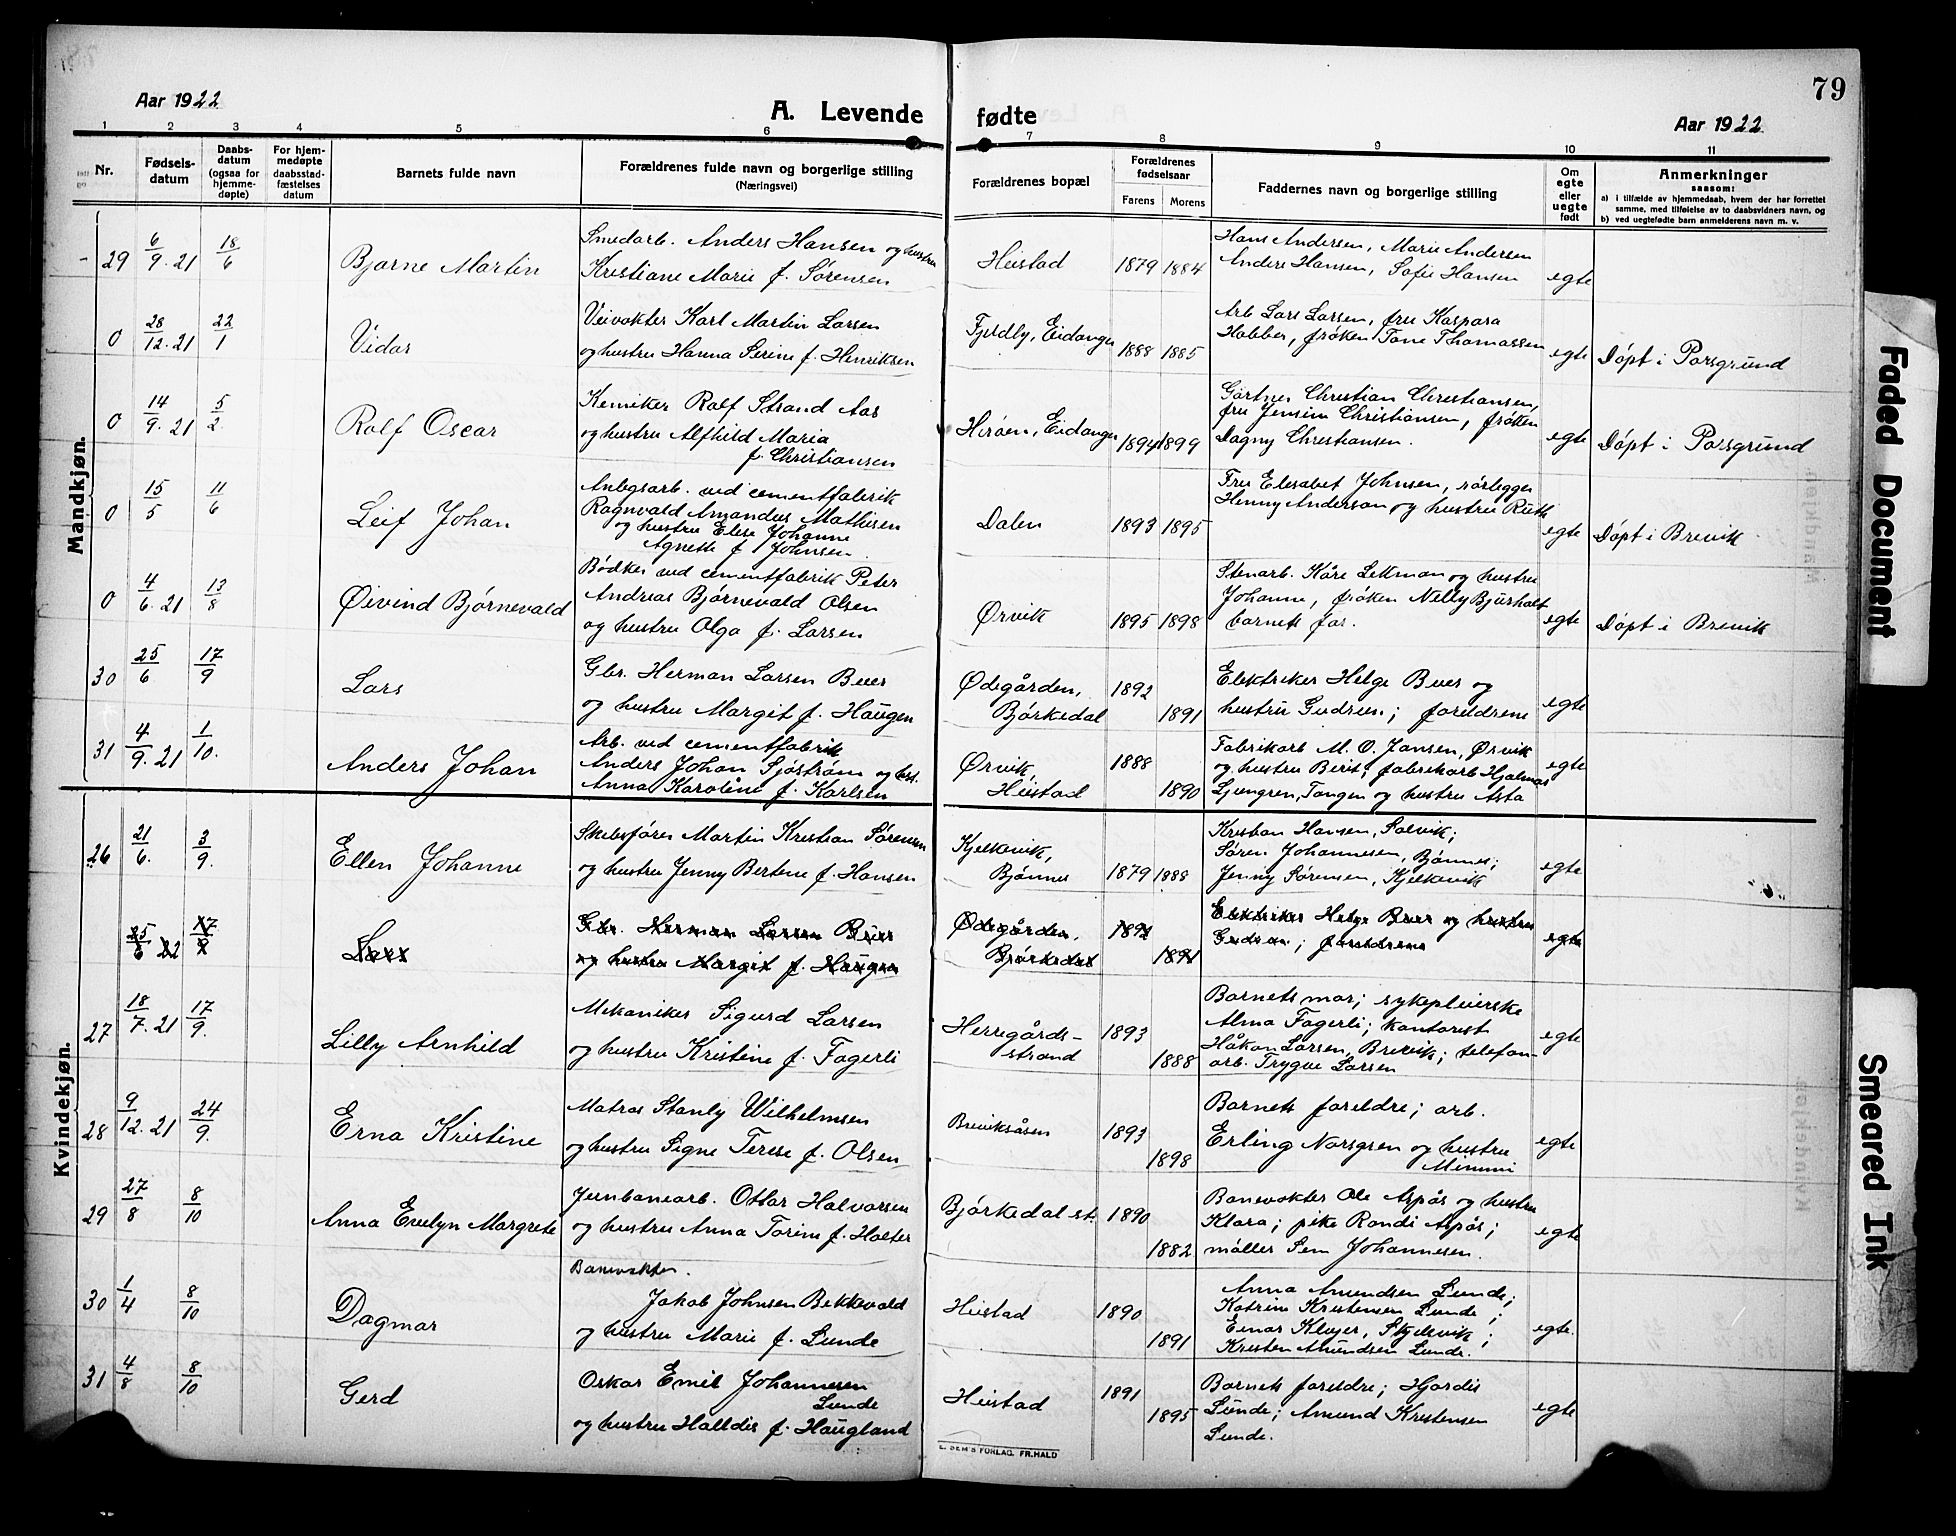 79
Aar 1922
A. Levende fødte
Aar 1922
1 2 3 4 5 6 7 8 9 10 11
Nr.
Fødsels-
datum
Daabs-
datum
(ogsaa for
hjemme-
døpte)
For hjem-
medøpte
daabsstad-
fæstelses
datum
Barnets fulde navn
Forældrenes fulde navn og borgerlige stilling
(Næringsvei)
Forældrenes bopæl
Forældrenes
fødselsaar
Farens Morens
Faddernes navn og borgerlige stilling
Om
egte
eller
uegte
født
Anmerkninger
saasom:
a) i tilfælde av hjemmedaab, hvem der har forrettet
samme, med tilføielse av to daabsvidners navn, og
b) ved uegtefødte barn anmelderens navn m. v.
Mandkjøn.
29 6/9. 21 18/6 Bjarne Martin
Smedarb. Anders Hansen og hustru
Kristiane Marie f. Sørensen
Heistad 1879 1884
Hans Andersen, Marie Andersen
Anders Hansen, Sofie Hansen
egte
0 28/12. 21 22/1 Vidar
Veivokter Karl Martin Larsen
og hustru Hanna Serine f. Henriksen
Fjeldly, Eidanger 1888 1885
Arb Lars Larsen, fru Kaspara
Habber, frøken Tone Thomassen
egte Døpt i Porsgrund
0 14/9. 21 5/2. Rolf Oscar
Kemiker Rolf Strand Aas
og hustru Alfhild Maria
f. Christiansen
Herøen, Eidanger 1894 1899
Gartner Christian Christiansen,
fru Jensine Christiansen, frøken
Dagny Christiansen.
egte Døpt i Porsgrund
0 15/5 11/6 Leif Johan
Anlegsarb. ved cementfabrik
Ragnvald Amandus Mathisen
og hustru Elise Johanne
Agnette f. Johnsen.
Dalen 1893 1895
Fru Elisabet Johnsen, rørlegger
Henny Anderson og hustru Ruth
egte Døpt i Brevik
0 4/6. 21 13/8 Øivind Bjørnevald
Bødker ved cementfabrik Peter
Andreas Bjørnevald Olsen
og hustru Olga f. Larsen
Ørvik 1895 1898
Stenarb. Kåre Lekman og hustru
Johanne, frøken Nelly Bjurholt
barnets far.
egte Døpt i Brevik
30 25/6 17/9 Lars
Gbr. Herman Larsen Buer
og hustru Margit f. Haugen
Ødegården,
Bjørkedal 1892 1891
Elektriker Helge Buer og
hustru Gudrun; foreldrene
egte
31 4/9. 21 1/10. Anders Johan
Arb. ved cementfabrik
Anders Johan Sjöström og hst.
Anna Karoline f. Karlsen
Ørvik,
Heistad 1888 1890
Fabrikarb M. O. Jansen, Ørvik
og hustru Berit; fabrikarb Hjalmar
Ljungren, Tangen og hustru Asta
egte
Kvindekjøn.
26 21/6. 3/9. Ellen Johanne
Skibsfører Martin Kristian Sørensen
og hustru Jenny Bertine f. Hansen
Kjelkevik,
Bjønnes 1879 1888
Kristian Hansen, Salvik;
Søren Johannesen, Bjønnes;
Jenny Sørensen, Kjelkevik
egte
25/6 22 17/9 Lars
Gbr. Herman Larsen Buer
og hustru Margit f. Haugen
Ødegården,
Bjørkedal 1892 1891
Elektriker Helge Buer og hustru
Gudrun; foreldrene
egte
27 18/7. 21 17/9. Lilly Arnhild
Mekaniker Sigurd Larsen
og hustru Kristine f. Fagerli
Herregårds-
strand 1893 1888
Barnets mor; sykepleierske
Alma Fagerli; kontorist
Håkon Larsen, Brevik; telefon-
arb. Trygve Larsen
egte
28 9/12. 21 24/9. Erna Kristine
Matros Stanly Wilhelmsen
og hustru Signe Terese f. Olsen
Breviksåsen 1893 1898
Barnets foreldre; arb.
Erling Norsgren og hustru
Mimmi
egte
29 27/8 8/10 Anna Evelyn Margrete
Jernbanearb. Ottar Halvorsen
og hustru Anna Torine f. Holter
Bjørkedal st. 1890 1882
Banevokter Ole Aspås og hustru
Klara; pike Randi Aspås;
møller Sem Johannesen.
egte
30 1/4 8/10 Dagmar
Banevokter.
Jakob Johnsen Bekkevald
og hustru Marie f. Lunde
Heistad 1890 1891
Anna Amundsen Lunde;
Katrine Kristensen Lunde;
Einar Klyjer, Skjelsvik;
Kristen Amundsen Lunde.
egte.
31 4/8 8/10 Gerd
Oskar Emil Johannesen
Lunde
og hustru Halldis f. Haugland
Heistad 1891 1895
Barnets foreldre; Hjordis
Lunde; Amund Kristensen
Lunde.
egte
E. SEM'S FORLAG. FR.HALD
Faded Document
Smeared Ink